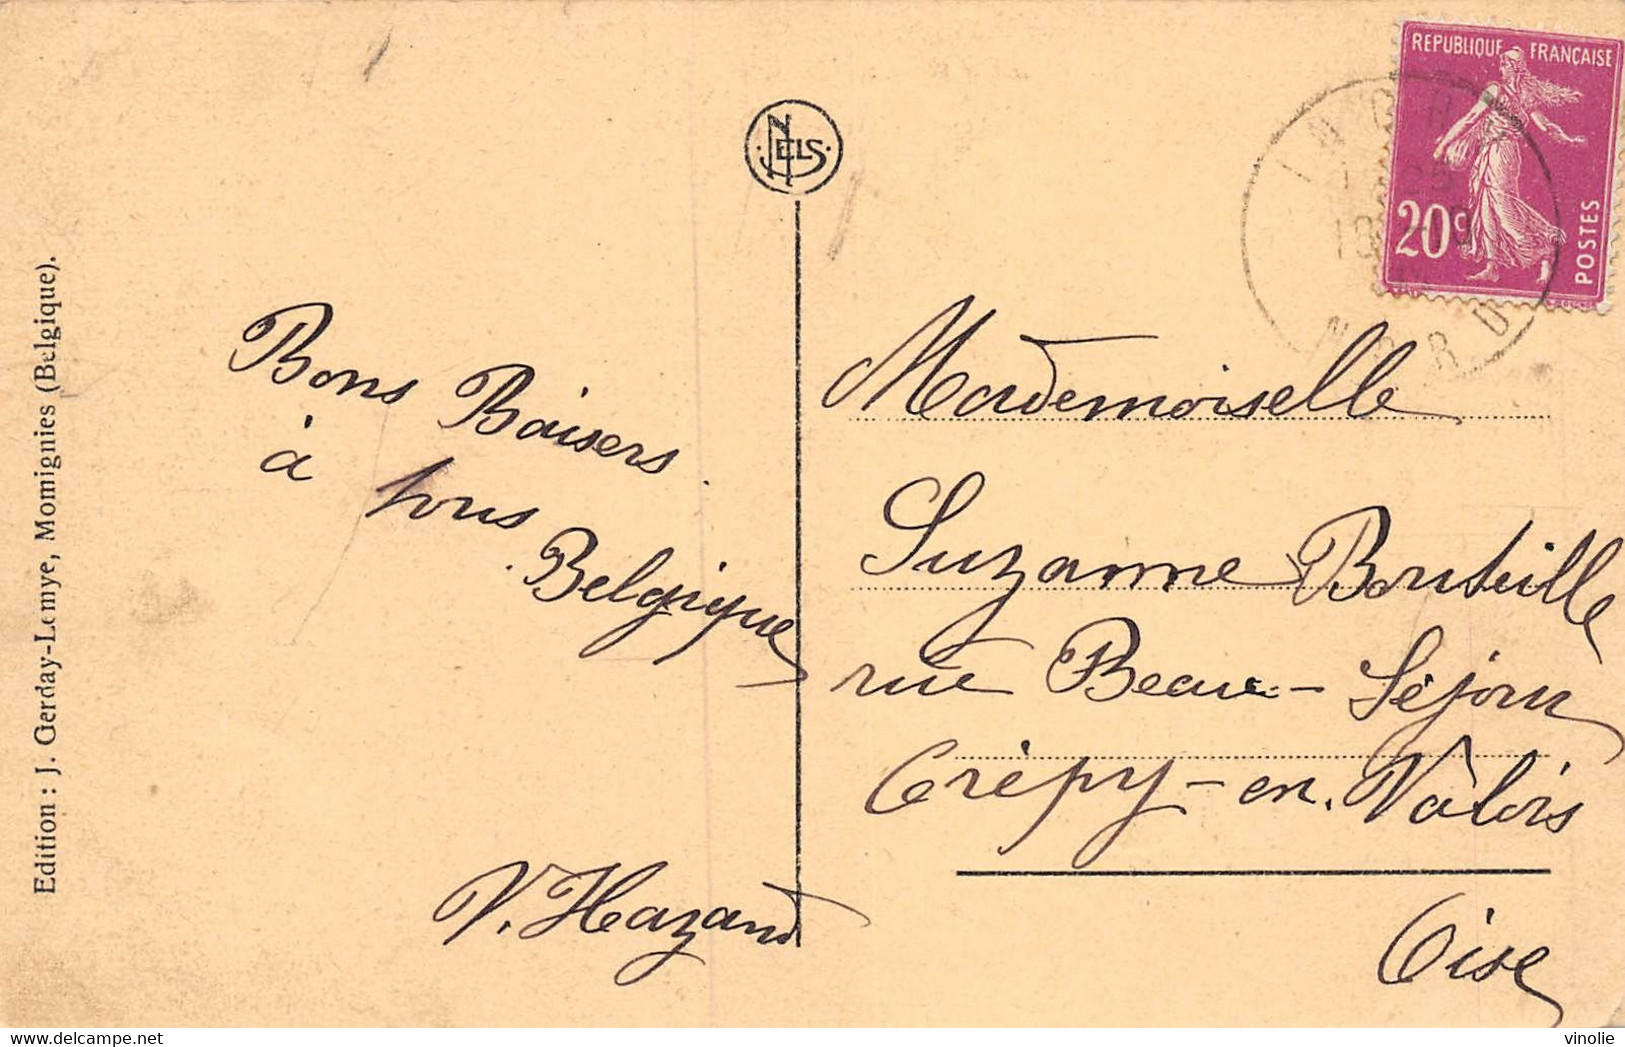 Edition : J. Gerday-Lemye, Momignies (Belgique).
NELS
REPUBLIQUE FRANÇAISE
20c
POSTES
NORD
Bons Baisers
à tous
Belgique
V. Hazard
Mademoiselle
Suzanne Bouteille
rue Beau-Séjour
Crépy-en-Valois
Oise
www.delcampe.net
vinolie